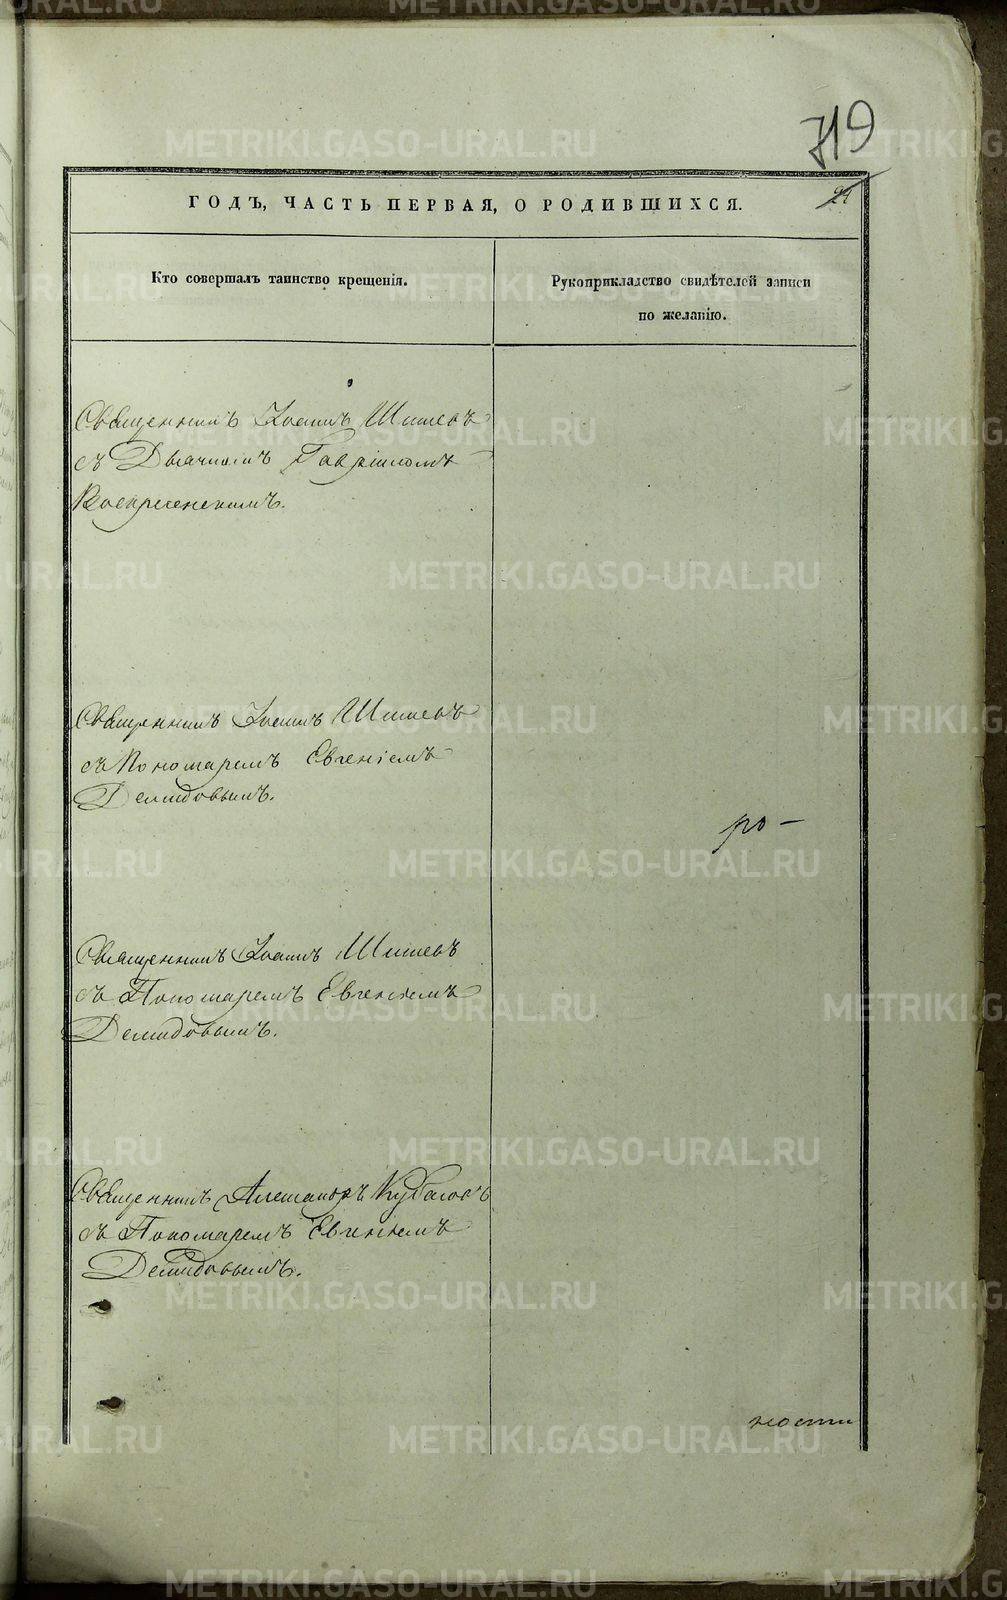 719
21
ГОДЪ, ЧАСТЬ ПЕРВАЯ, О РОДИВШИХСЯ.
Кто совершалъ таинство крещенія.
Рукоприкладство свидѣтелей записи
по желанію.
Священникъ Іоаннъ Шишевъ
съ Дьячкомъ Гавріиломъ
Воскресенскимъ.
Священникъ Іоаннъ Шишевъ
съ Пономаремъ Евгеніемъ
Демидовымъ.
ро-
Священникъ Іоаннъ Шишевъ
съ Пономаремъ Евгеніемъ
Демидовымъ.
Священникъ Александръ
съ Пономаремъ Евгеніемъ
Демидовымъ.
ности
METRIKI.GASO-URAL.RU